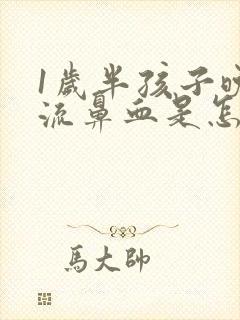 1歲半孩子晚
流鼻血是怎
馬大帥